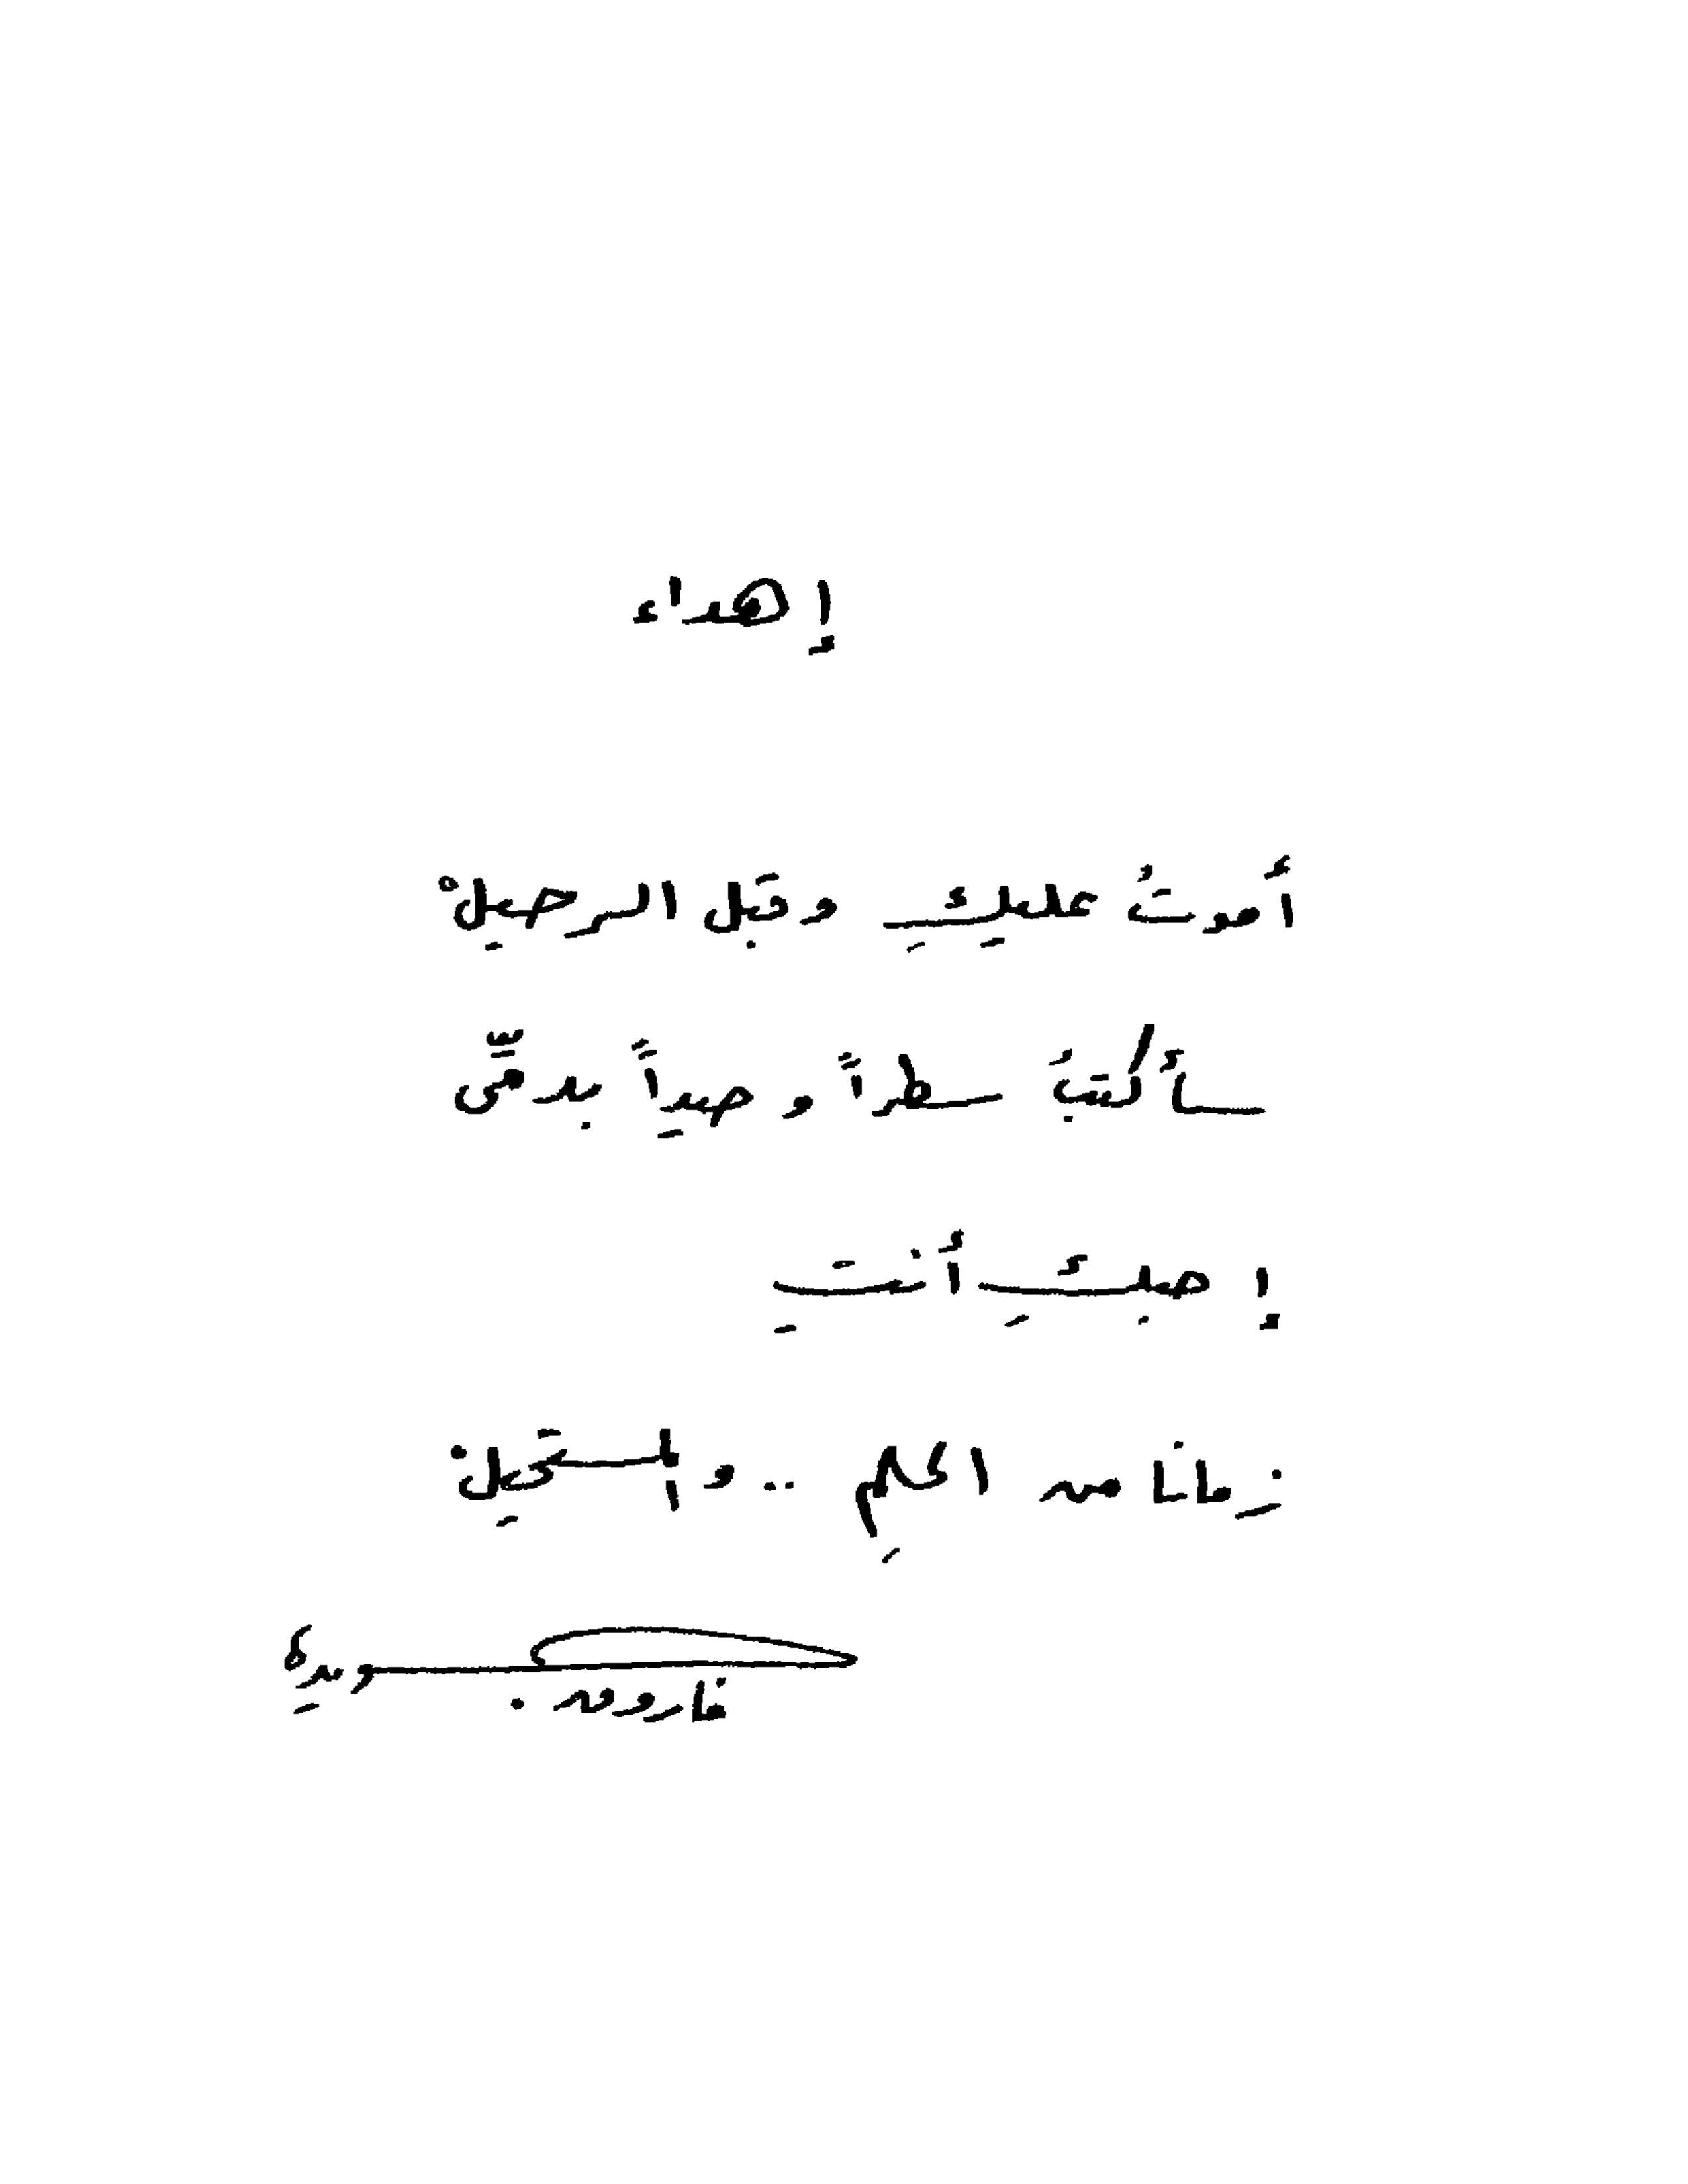 إهداء
أموتُ عليكِ وقبل الرحيلْ
سأكتبُ سطراً وحيداً بدمّى
إحبكِ أنتِ
زمانا من الحلمِ .. والمستحيلْ
فاروق جويدة